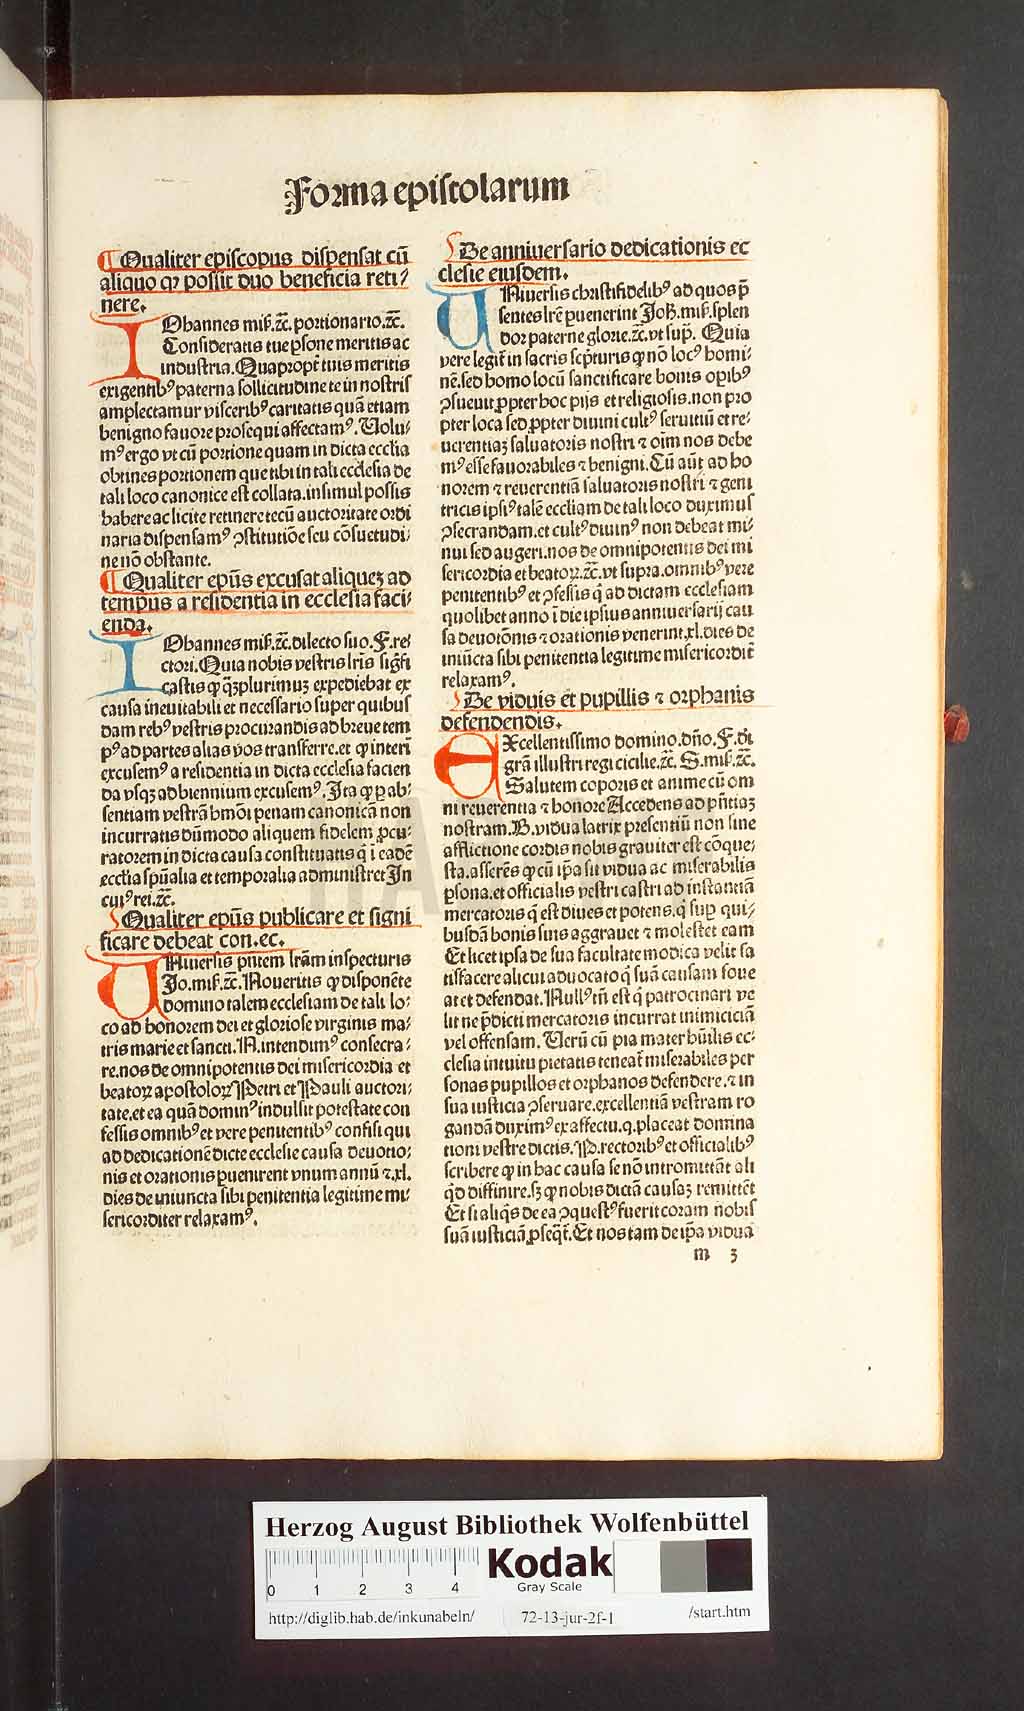 Forma epistolarum
¶ Qualiter episcopus dispensat cū
aliquo qꝫ possit duo beneficia reti⸗
nere.
IOhannes mis̄. ⁊c̄. portionario. ⁊c̄.
Consideratis tue ꝑsone meritis ac
industria. Quapropt̄ tuis meritis
exigentibꝰ paterna sollicitudine te in nostris
amplectamur visceribꝰ caritatis quā etiam
benigno fauore prosequi affectamꝰ. Uolu⸗
mꝰ ergo vt cū portione quam in dicta ecclīa
obtines portionem que tibi in tali ecclesia de
tali loco canonice est collata. insimul possis
habere ac licite retinere tecū auctoritate ordi
naria dispensamꝰ ꝯstitutiōe seu cōsuetudi⸗
ne nō obstante.
¶ Qualiter ep̄us excusat aliquez ad
tempus a residentia in ecclesia faci⸗
enda.
IOhannes mis̄. ⁊c̄. dilecto suo. F. re⸗
ctori. Quia nobis vestris lr̄is siḡfi
castis ꝙ qꝫplurimuz expediebat ex
causa ineuitabili et necessario super quibus
dam rebꝰ vestris procurandis ad breue tem
pꝰ ad partes alias vos transferre. et ꝙ interī
excusemꝰ a residentia in dicta ecclesia facien
da vsqꝫ ad biennium excusemꝰ. Ita ꝙ ꝑ ab⸗
sentiam vestrā hmōi penam canonicā non
incurratis dūmodo aliquem fidelem ꝓcu⸗
ratorem in dicta causa constituatis q̄ ī eadē
ecclīa spūalia et temporalia administret In
cuiꝰ rei. ⁊c̄.
Qualiter ep̄us publicare et signi
ficare debeat con. ec.
UNiuersis p̄ntem lr̄am inspecturis
Jo. mis̄. ⁊c̄. Noueritis ꝙ disponēte
domino talem ecclesiam de tali lo⸗
co ad honorem dei et gloriose virginis ma⸗
tris marie et sancti. N. intendimꝰ consecra⸗
re. nos de omnipotentis dei misericordia et
beatoꝝ apostoloꝝ Petri et Pauli auctori⸗
tate. et ea quā dominꝰ indulsit potestate con
fessis omnibꝰ et vere penitentibꝰ confisi qui
ad dedicationē dicte ecclesie causa deuotio⸗
nis et orationis ꝑuenirent vnum annū ⁊. xl.
dies de iniuncta sibi penitentia legitime mi⸗
sericorditer relaxamꝰ.
De anniuersario dedicationis ec
clesie eiusdem.
UNiuersis christifidelibꝰ ad quos p̄
sentes lr̄e ꝑuenerint Joh̄. mis̄. splen
dor paterne glorie. ⁊c̄. vt sup̄. Quia
vere legit̄ in sacris scp̄turis ꝙ nō locꝰ homi⸗
nē. sed homo locū sanctificare bonis opibꝰ
ꝯsueuit ꝓpter hoc pijs et religiosis. non pro
pter loca sed ꝓpter diuini cultꝰ seruitiū et re⸗
uerentiaꝫ saluatoris nostri ⁊ oīm nos debe
mꝰ esse fauorabiles ⁊ benigni. Cū aūt ad ho
norem ⁊ reuerentiā saluatoris nostri ⁊ geni
tricis ipsiꝰ talē eccliam de tali loco duximus
ꝯsecrandam. et cultꝰ diuinꝰ non debeat mi⸗
nui sed augeri. nos de omnipotentis dei mi
sericordia et beatoꝝ. ⁊c̄. vt supra. omnibꝰ vere
penitentibꝰ et ꝯfessis q̄ ad dictam ecclesiam
quolibet anno ī die ipsius anniuersarij cau
sa deuotōnis ⁊ orationis venerint. xl. dies de
iniūcta sibi penitentia legitime misericordit̄
relaxamꝰ.
De viduis et pupillis ⁊ orphanis
defendendis.
EXcellentissimo domino. dn̄o. F. di
grā illustri regi cicilie. ⁊c̄. S. mis̄. ⁊c̄.
Salutem coporis et anime cū om
ni reuerentia ⁊ honore Accedens ad pn̄tiaꝫ
nostram. B. vidua latrix presentiū non sine
afflictione cordis nobis grauiter est cōque⸗
sta. asserēs ꝙ cū ip̄a sit vidua ac miserabilis
ꝑsona. et officialis vestri castri ad instantiā
mercatoris q̄ est diues et potens. q̄ suꝑ qui⸗
busdā bonis suis aggrauet ⁊ molestet eam
Et licet ipsa de sua facultate modica velit sa
tisfacere alicui aduocato q̄ suā causam foue
at et defendat. Nullꝰ tn̄ est q̄ patrocinari ve
lit ne p̄dicti mercatoris incurrat inimiciciā
vel offensam. Uerū cū pia mater hūilis ec⸗
clesia intuitu pietatis teneat̄ miserabiles per
sonas pupillos et orphanos defendere. ⁊ in
sua iusticia ꝯseruare. excellentiā vestram ro
gandā duximꝰ ex affectu. q. placeat domina
tioni vestre dictis. P. rectoribꝰ et officialibꝰ
scribere ꝙ in hac causa se nō intromittāt ali
q̄d diffinire. sꝫ ꝙ nobis dictā causaꝫ remittēt
Et si aliq̄s de ea ꝯquestꝰ fuerit coram nobis
suā iusticiā ꝓseqt̄. Et nos tam de ip̄a vidua
m 3
Herzog August Bibliothek Wolfenbüttel
0 1 2 3 4
Kodak
Gray Scale
http://diglib.hab.de/inkunabeln/ 72-13-jur-2f-1 /start.htm